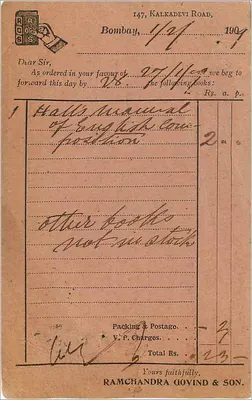 147, KALKADEVI ROAD,
Bombay, 1/2/ 1909
Dear Sir,
As ordered in your favour of 27/1/09 we beg to
forward this day by the following books:
Rs. a. p.
1 Hall's manual 2
of English Com
position
other books
not in stock
Packing & Postage
V. P. Charges.
Total Rs. 2 3
Yours faithfully,
RAMCHANDRA GOVIND & SON.